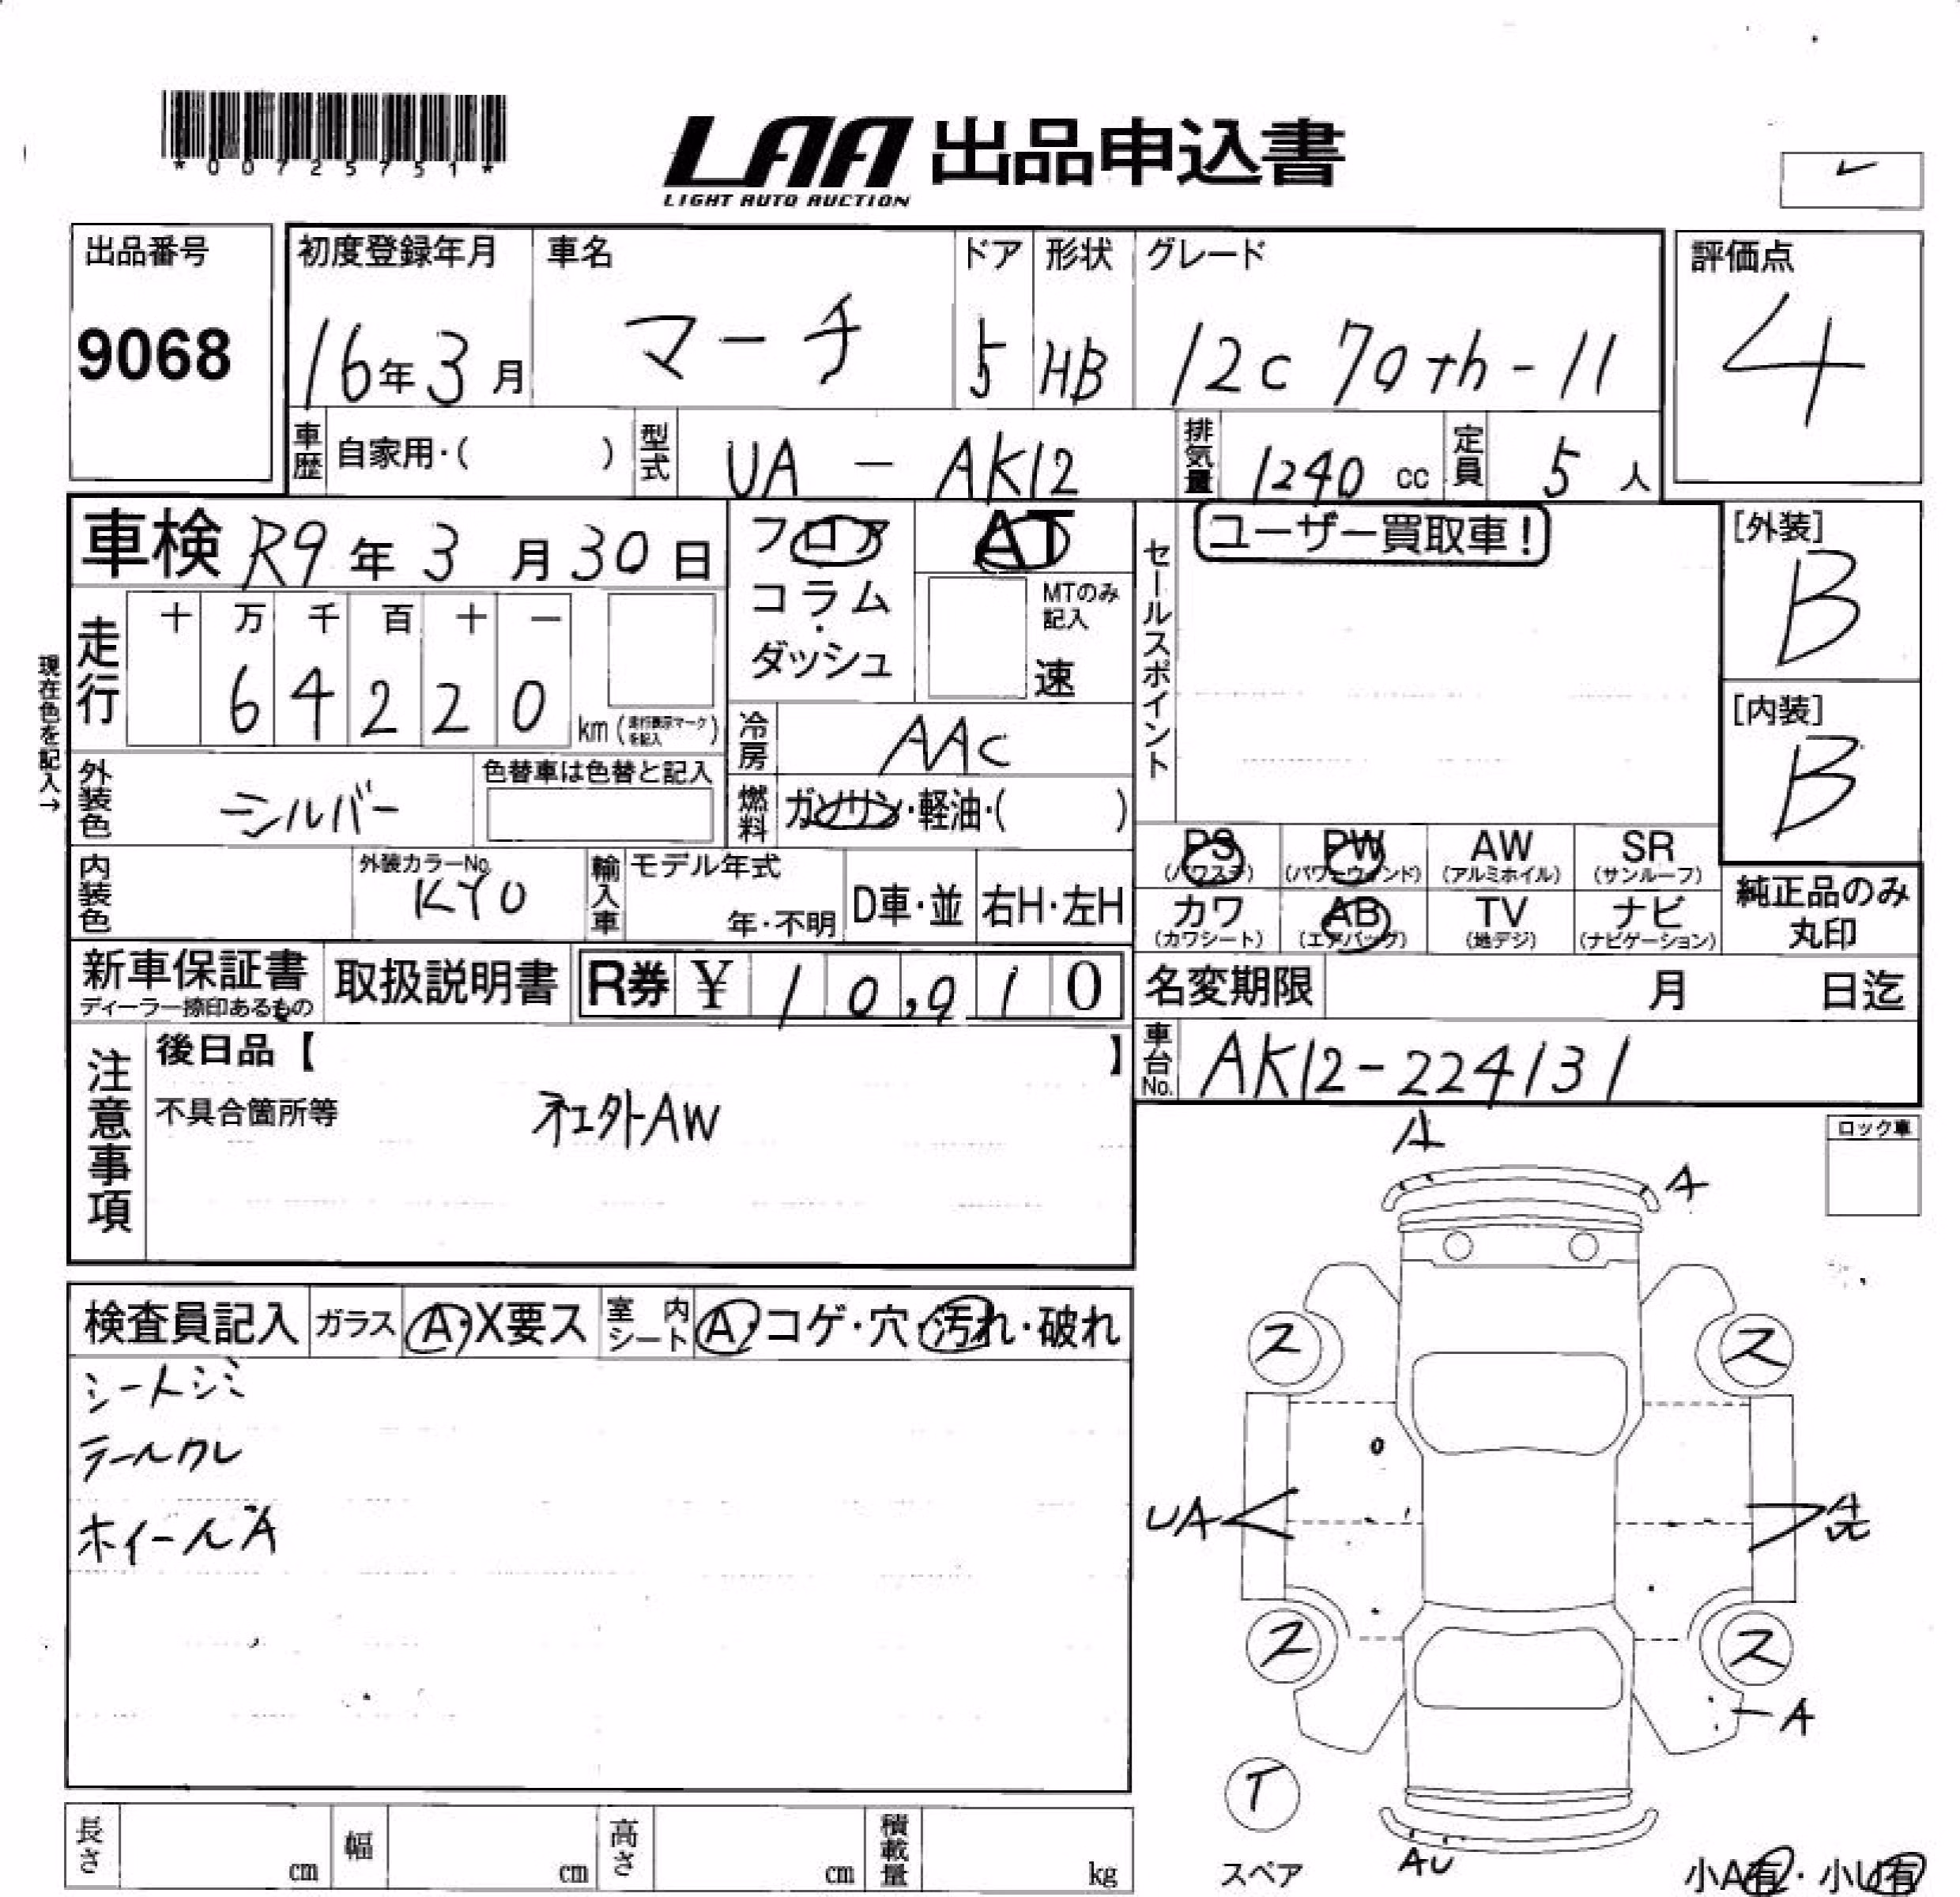 *00725751*
LAA 出品申込書
LIGHT AUTO AUCTION
出品番号
9068
初度登録年月
16年3月
車名
マーチ
ドア
5
形状
HB
グレード
12c 70th-11
評価点
4
車歴
自家用・( )
型式
UA - AK12
排気量
1240 cc
定員
5 人
車検 R9年3月30日
フロア
コラム
・
ダッシュ
AT
MTのみ記入
速
セールスポイント
ユーザー買取車!
[外装]
B
[内装]
B
現在色を記入→
走行
十 万 千 百 十 一
6 4 2 2 0
km (走行表示マークを記入)
冷房
AAC
外装色
シルバー
色替車は色替と記入
燃料
ガソリン・軽油・( )
内装色
外装カラーNo.
KY0
輸入車
モデル年式
年・不明
D車・並
右H・左H
PS
(パワステ)
PW
(パワーウィンド)
AW
(アルミホイル)
SR
(サンルーフ)
カワ
(カワシート)
AB
(エアバッグ)
TV
(地デジ)
ナビ
(ナビゲーション)
純正品のみ
丸印
新車保証書
ディーラー捺印あるもの
取扱説明書
R券 ¥ 10,910
名変期限 月 日迄
車台No.
AK12-224131
注意事項
後日品【 】
不具合箇所等
社外AW
ロック車
A
A
検査員記入
ガラス
A・X要ス
室内シート
A・コゲ・穴・汚れ・破れ
シートシミ
テールワレ
ホイールA
ス
ス
UA
A
ス
ス
A
T
スペア
AU
小A有・小U有
長さ
cm
幅
cm
高さ
cm
積載量
kg